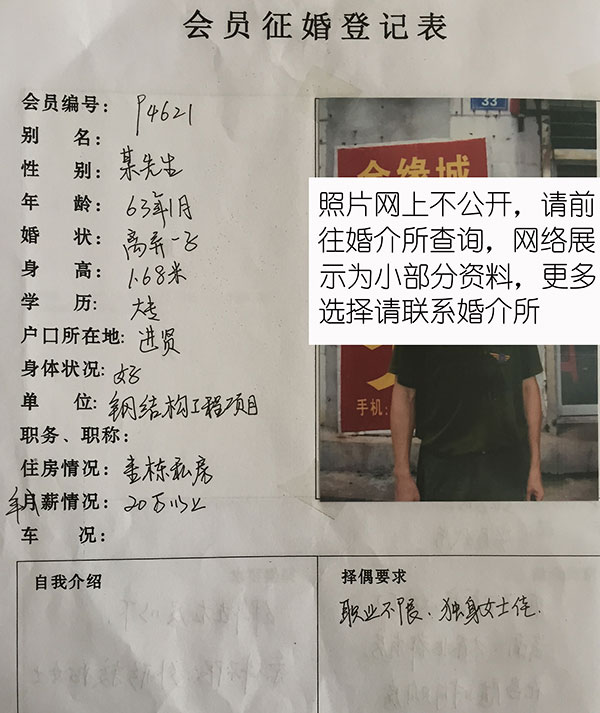 会员征婚登记表
会员编号: P4621
别 名:
性 别: 某先生
年 龄: 63年1月
婚 状: 离异一
身 高: 1.68米
学 历: 大专
户口所在地: 进贤
身体状况: 好
单 位: 钢结构工程项目
职务、职称:
住房情况: 壹栋私房
月薪情况: 20万以上
车 况:
33
照片网上不公开，请前
往婚介所查询，网络展
示为小部分资料，更多
选择请联系婚介所
手机:
自我介绍
择偶要求
职业不限、独身女士佳.